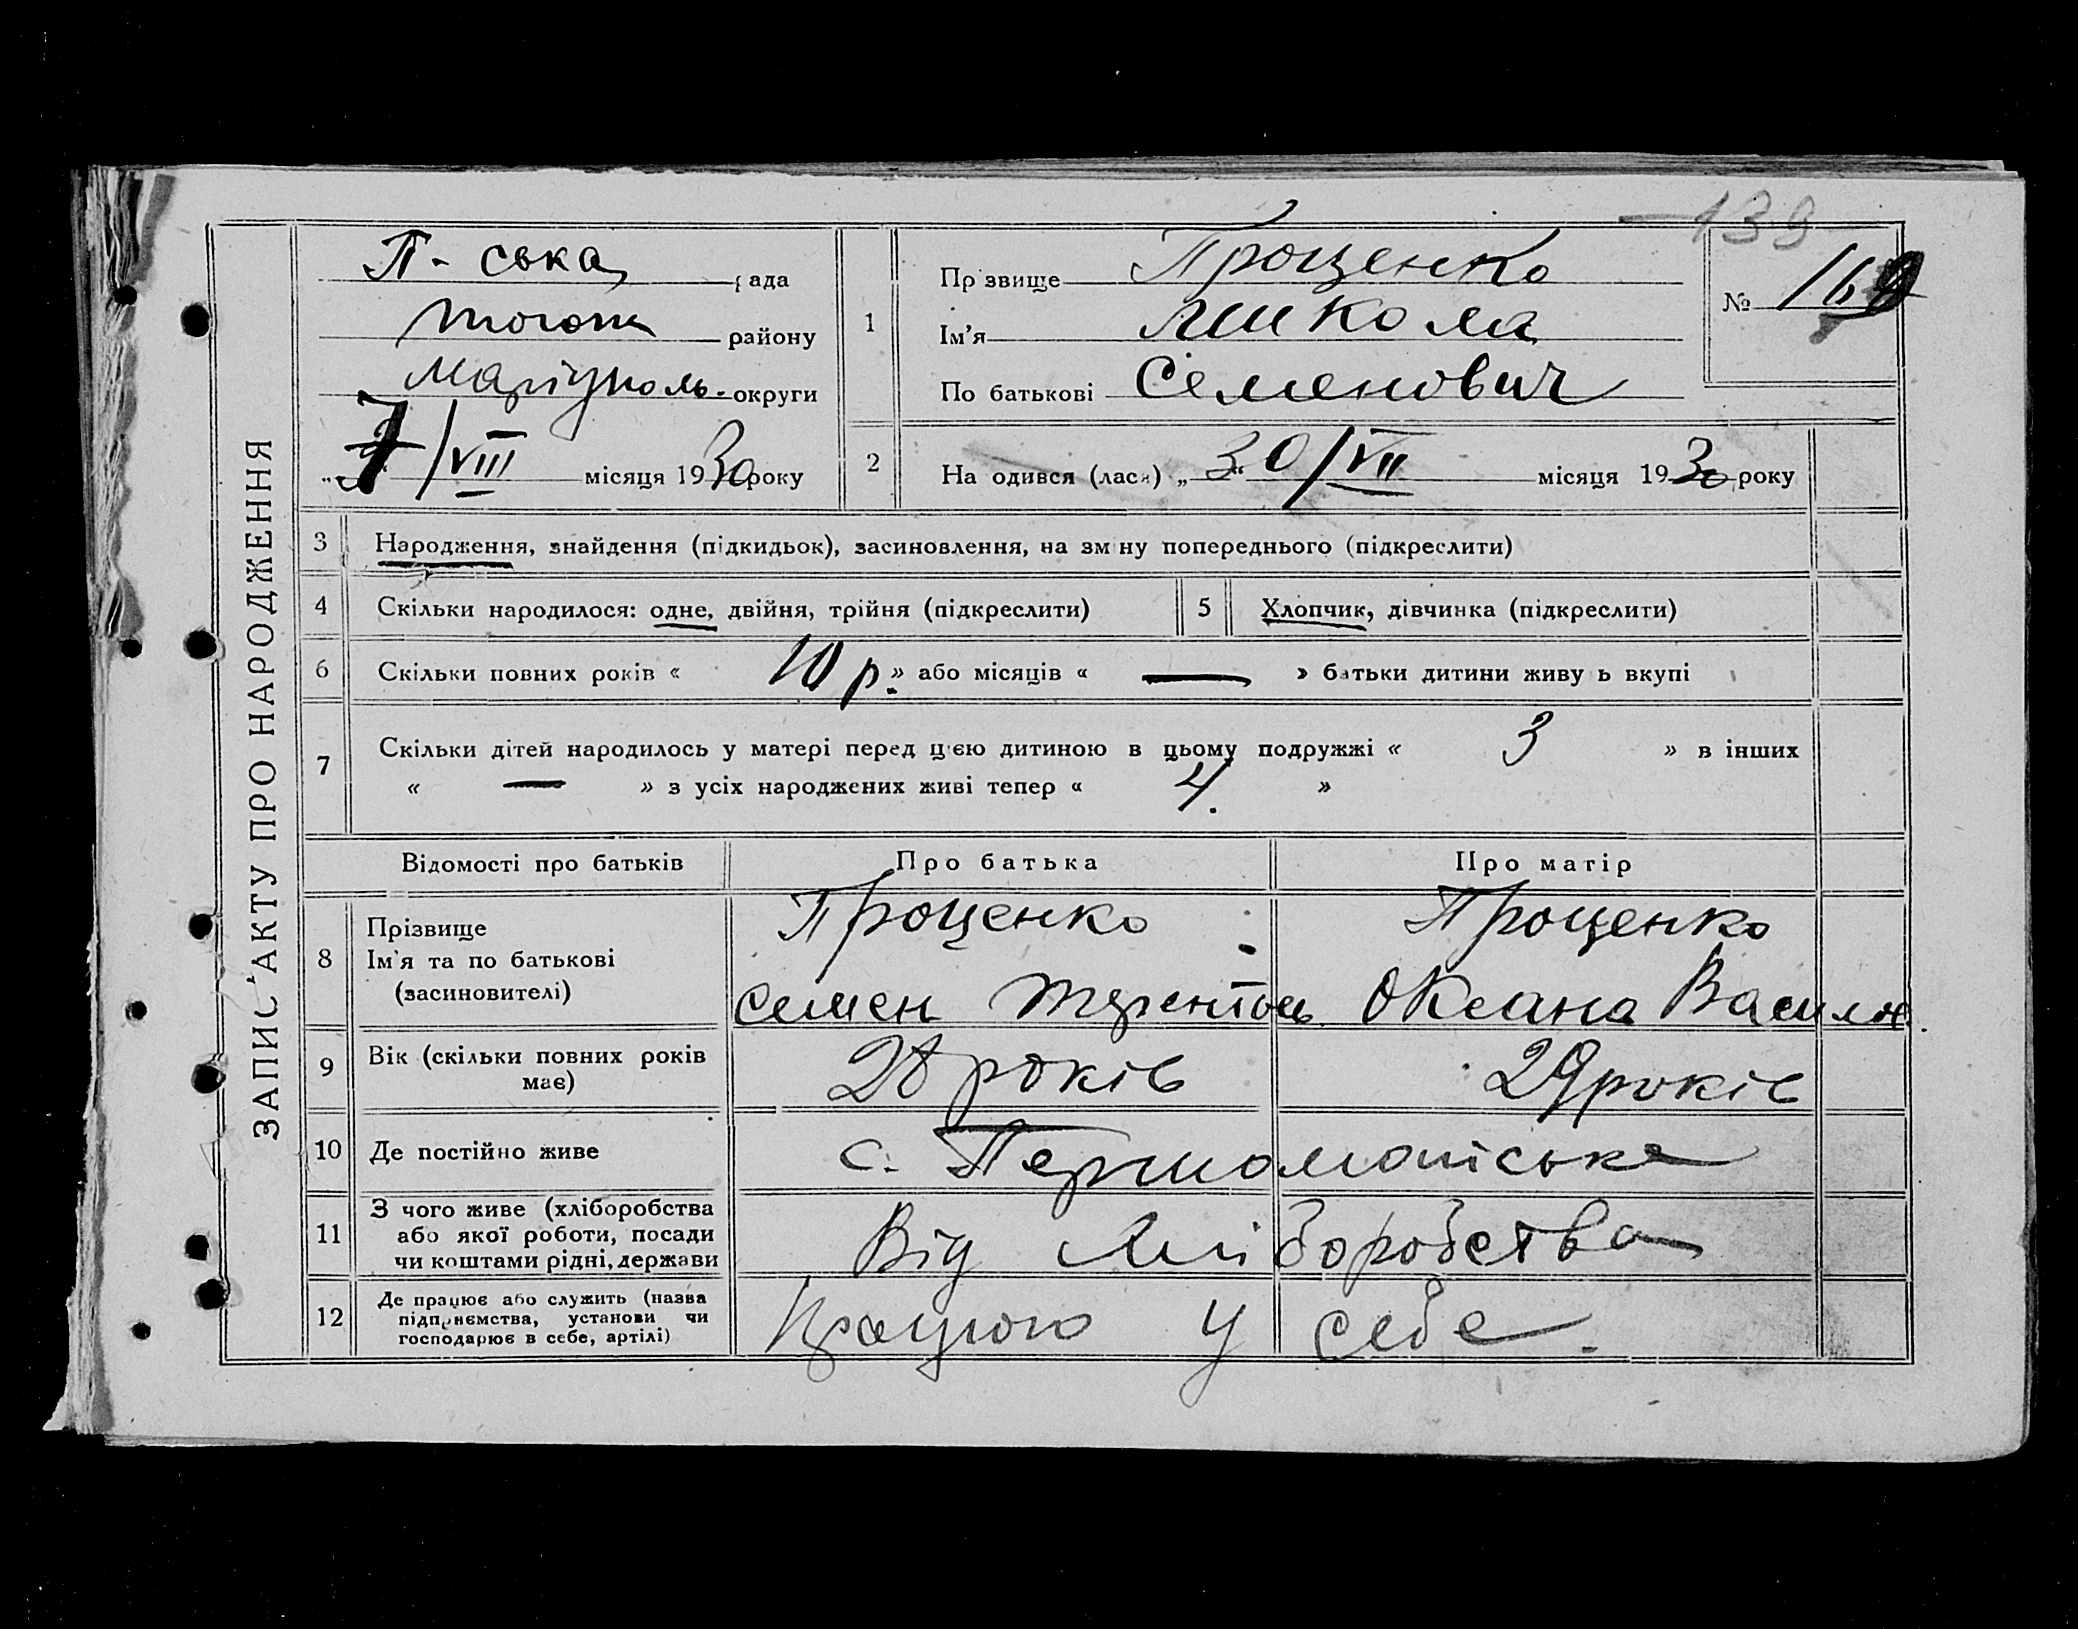 139
ЗАПИС АКТУ ПРО НАРОДЖЕННЯ
П-ська рада
району
Маріуполь. округи
7/VIII місяця 1930 року
1
Прізвище Проценко
Ім'я Микола
По батькові Семенович
№ 16
2
Народився (лася) „30/VII місяця 1930 року
3 Народження, знайдення (підкидьок), засиновлення, на зміну попереднього (підкреслити)
4 Скільки народилося: одне, двійня, трійня (підкреслити)
5 Хлопчик, дівчинка (підкреслити)
6 Скільки повних років « 10 р. » або місяців « — » батьки дитини живуть вкупі
7 Скільки дітей народилось у матері перед цією дитиною в цьому подружжі « 3 » в інших
« — » з усіх народжених живі тепер « 4. »
Відомості про батьків Про батька Про матір
8 Прізвище
Ім'я та по батькові
(засиновителі)
Проценко
Семен Терентов.
Проценко
Оксана Василів.
9 Вік (скільки повних років має)
28 років
29 років
10 Де постійно живе
с. Першомайське
11 З чого живе (хліборобства
або якої роботи, посади
чи коштами рідні, держави
Від хліборобства
12 Де працює або служить (назва
підприємства, установи чи
господарює в себе, артілі)
Працюю у себе.